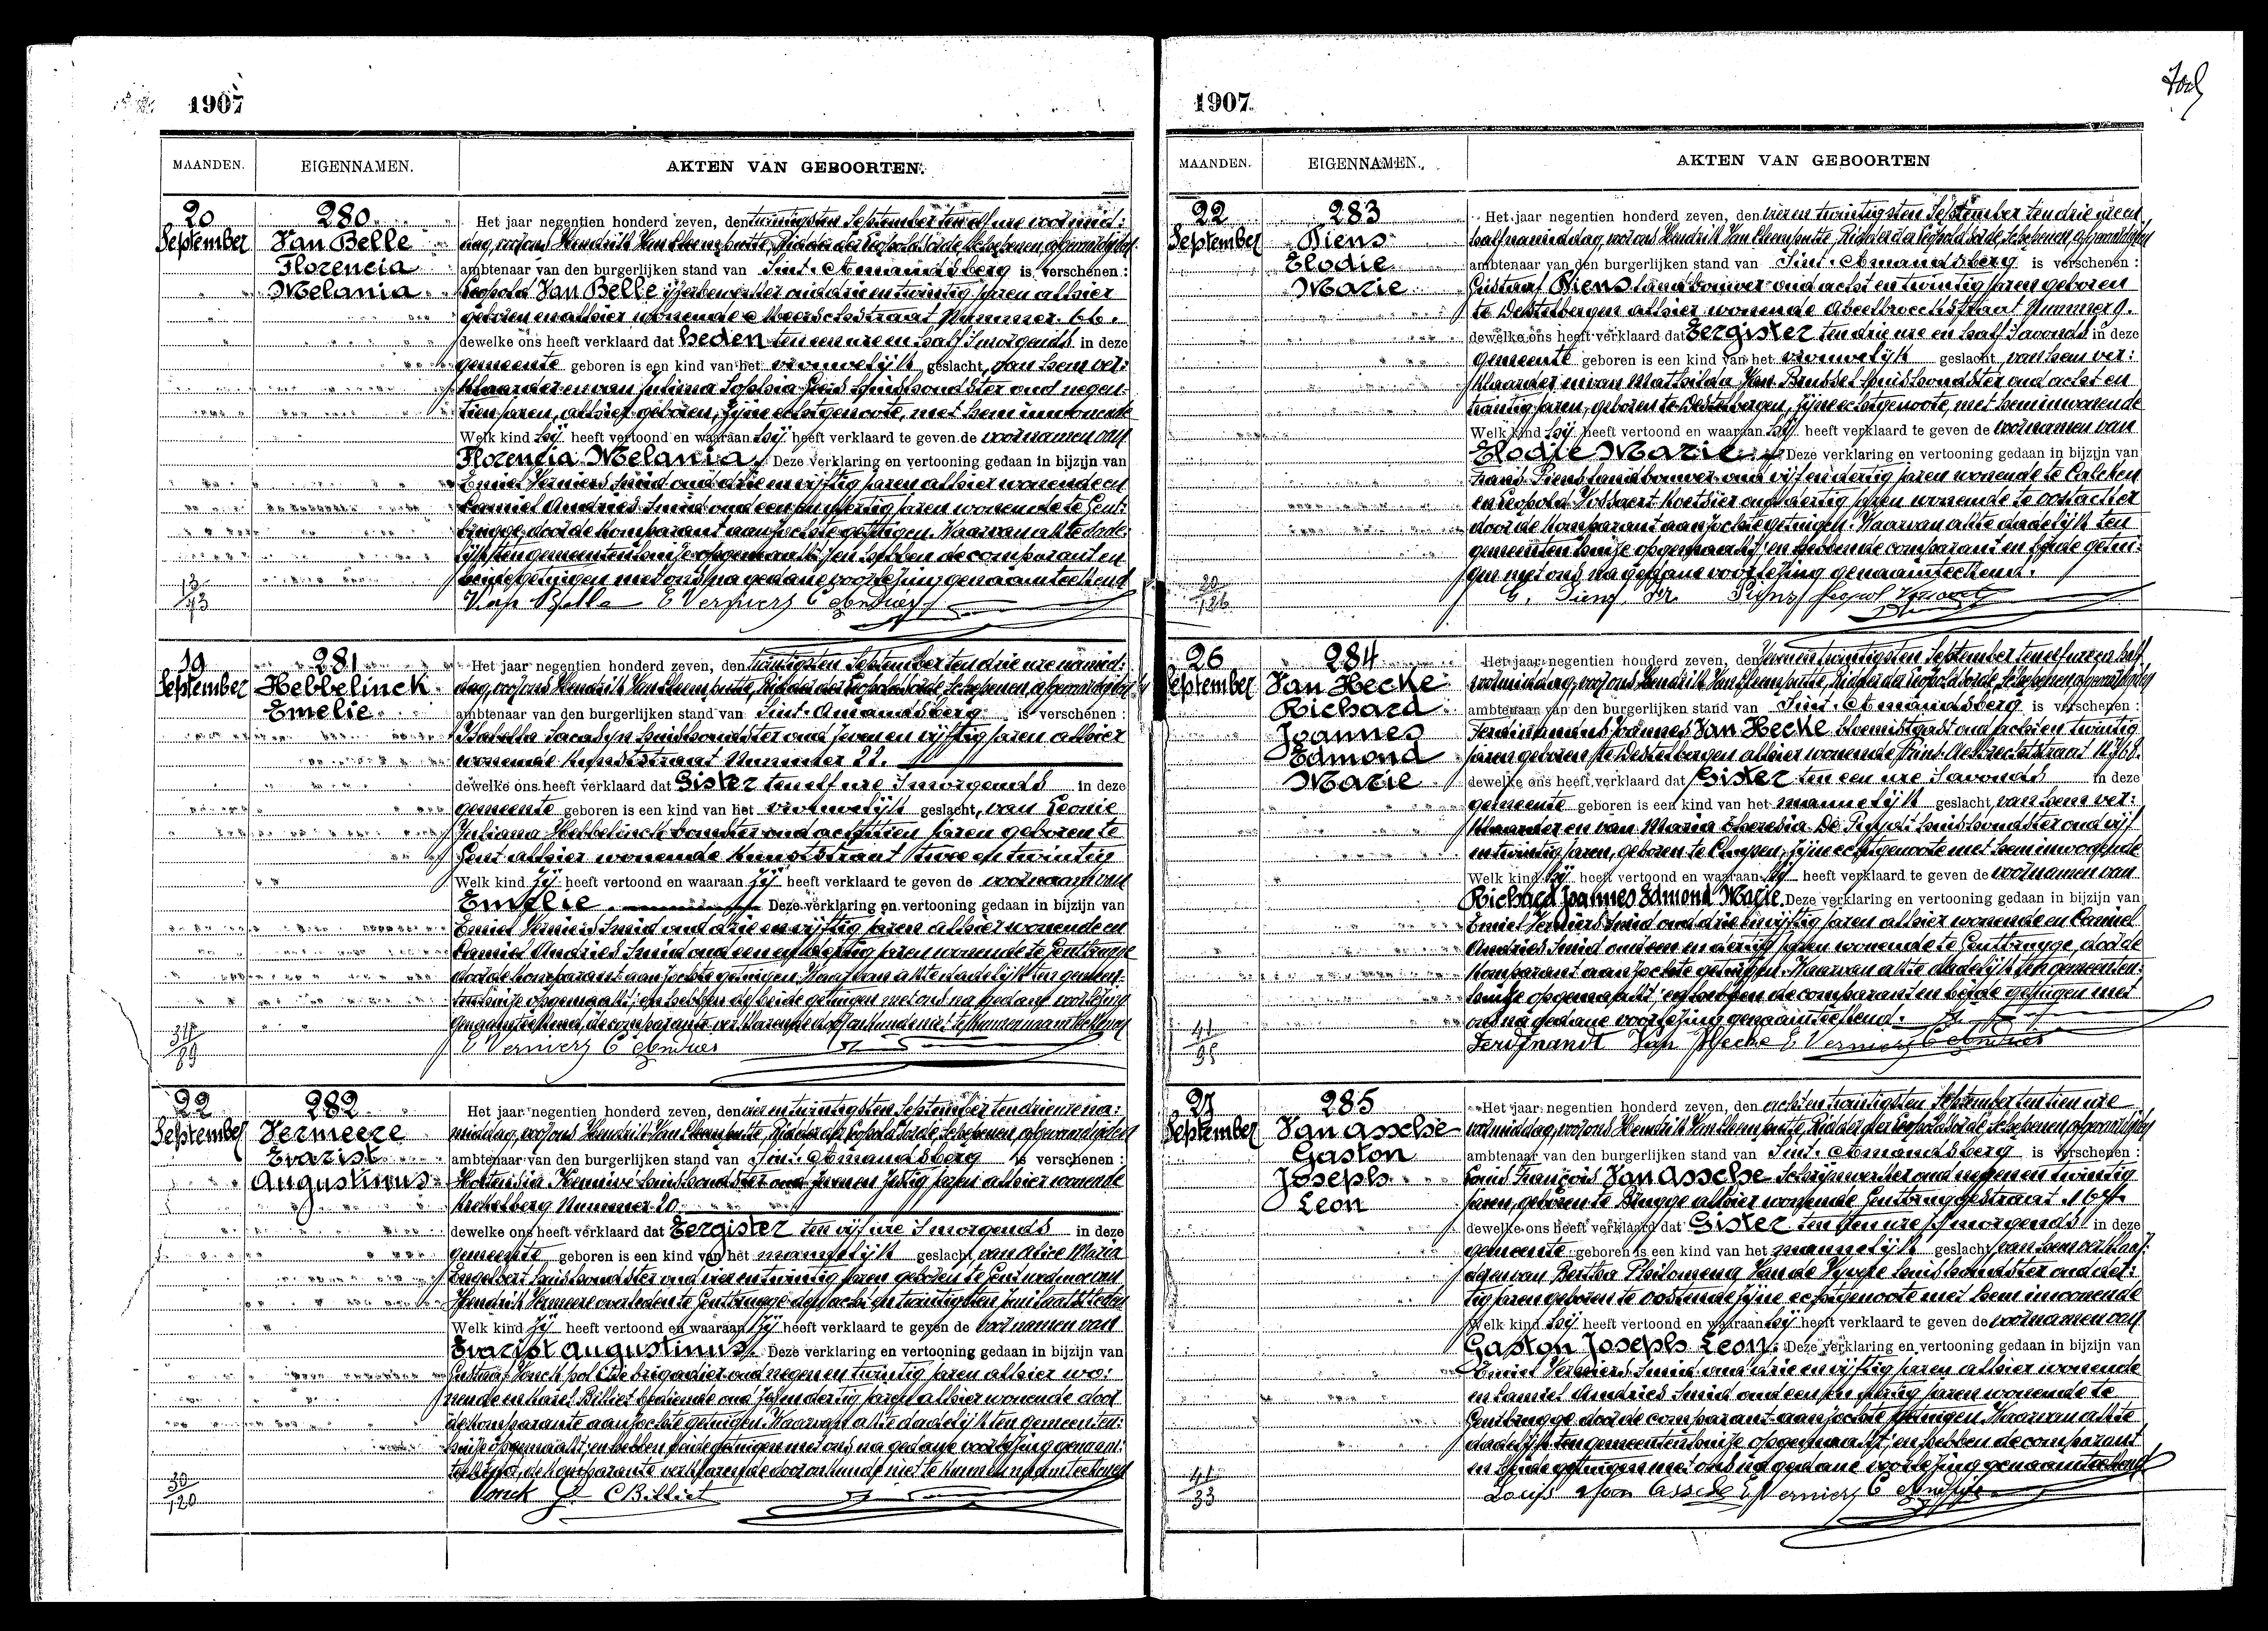 1907
MAANDEN. EIGENNAMEN. AKTEN VAN GEBOORTEN.
20 September
280
Van Belle
Florencia
Melania
Het jaar negentien honderd zeven, den twintigsten September ten elf ure voormid:
dag, voor ons Hendrik Van Ridder der Leopoldsorde, Schepenen, afgevaardigden
ambtenaar van den burgerlijken stand van Sint-Amandsberg is verschenen:
Leopold Van Belle ijzerbewerker oud drie en twintig jaren alhier
geboren en alhier wonende Meerschstraat Nummer 66.
dewelke ons heeft verklaard dat heden ten een ure en half s'morgends in deze
gemeente geboren is een kind van het vrouwelijk geslacht, van hem ver:
klaarder en van Sophia huishoudster oud negen:
tien jaren, alhier geboren, zijne echtgenoote, met hem inwonende
Welk kind hij heeft vertoond en waaraan hij heeft verklaard te geven de voornamen van
Florencia Melania. Deze verklaring en vertooning gedaan in bijzijn van
Emiel Verniers Smid oud drie en vijftig jaren alhier wonende en
Camiel Andries Smid oud een en dertig jaren wonende te Gent:
brugge, door de komparant aanzochte getuigen. Waarvan akte dade:
lijk ten gemeentenhuize opgemaakt; en hebben de comparant en
beide getuigen met ons na gedane voorlezing genaamteekend
13/73
Van Belle E Verniers C Andries
19 September
281
Hebbelinck
Emelie
Het jaar negentien honderd zeven, den twintigsten September ten drie ure namid:
dag, voor ons Hendrik Van Ridder der Leopoldsorde, Schepenen, afgevaardigden
ambtenaar van den burgerlijken stand van Sint-Amandsberg is verschenen:
huishoudster oud zeven en vijftig jaren alhier
wonende Kunststraat Nummer 22.
dewelke ons heeft verklaard dat Gister ten elf ure s'morgends in deze
gemeente geboren is een kind van het vrouwelijk geslacht, van Leonie
Juliana Hebbelinck oud achttien jaren geboren te
Gent alhier wonende Kunststraat twee en twintig
Welk kind zij heeft vertoond en waaraan zij heeft verklaard te geven de voornaam van
Emelie. Deze verklaring en vertooning gedaan in bijzijn van
Emiel Verniers Smid oud drie en vijftig jaren alhier wonende en
Camiel Andries Smid oud een en dertig jaren wonende te Gentbrugge
door de komparant aanzochte getuigen. Waarvan akte dadelijk ten gemeen:
tenhuize opgemaakt; en hebben de beide getuigen met ons na gedane voorlezing
genaamteekend, de comparante verklarende door onkunde niet te kunnen naamteekenen
E Verniers C Andries
22 September
282
Vermeere
Evarist
Augustinus
Het jaar negentien honderd zeven, den vier en twintigsten September ten drie ure na:
middag, voor ons Hendrik Van Ridder der Leopoldsorde, Schepenen, afgevaardigden
ambtenaar van den burgerlijken stand van Sint-Amandsberg is verschenen:
Hortensia huishoudster oud zeven en zestig jaren alhier wonende
Nummer 20
dewelke ons heeft verklaard dat Eergister ten vijf ure s'morgends in deze
gemeente geboren is een kind van het mannelijk geslacht, van Alice Maria
Engelbert huishoudster oud vier en twintig jaren geboren te Gent weduwe van
Hendrik Vermeere overleden te Gentbrugge den acht en twintigsten Juni laatstleden
Welk kind zij heeft vertoond en waaraan zij heeft verklaard te geven de voornamen van
Evarist Augustinus. Deze verklaring en vertooning gedaan in bijzijn van
Gustaaf Vonck brigadier oud negen en twintig jaren alhier wo:
nende en Karel Billiet bediende oud zes en dertig jaren alhier wonende door
de komparante aanzochte getuigen. Waarvan akte dadelijk ten gemeenten:
huize opgemaakt; en hebben beide getuigen met ons na gedane voorlezing genaam:
teekend, de komparante verklarende door onkunde niet te kunnen naamteekenen
30/120
Vonck G. C Billiet
1907.
MAANDEN. EIGENNAMEN. AKTEN VAN GEBOORTEN
22 September
283
Piens
Elodie
Marie
Het jaar negentien honderd zeven, den vier en twintigsten September ten drie ure en
half namiddag, voor ons Hendrik Van Ridder der Leopoldsorde, Schepenen, afgevaardigden
ambtenaar van den burgerlijken stand van Sint-Amandsberg is verschenen:
Gustaaf Piens landbouwer oud acht en twintig jaren geboren
te Destelbergen alhier wonende Nummer 9.
dewelke ons heeft verklaard dat Eergister ten drie ure en half s'avonds in deze
gemeente geboren is een kind van het vrouwelijk geslacht, van hem ver:
klaarder en van Mathilda Van Brussel huishoudster oud acht en
twintig jaren, geboren te Destelbergen, zijne echtgenoote, met hem inwonende
Welk kind hij heeft vertoond en waaraan hij heeft verklaard te geven de voornamen van
Elodie Marie. Deze verklaring en vertooning gedaan in bijzijn van
Frans Piens landbouwer oud vijf en dertig jaren wonende te Calcken
en Leopold koetsier oud dertig jaren wonende te Oostacker
door de komparant aanzochte getuigen. Waarvan akte dadelijk ten
gemeentenhuize opgemaakt; en hebben de comparant en beide getui:
gen met ons na gedane voorlezing genaamteekend.
20/126
G. Piens. Fr. Piens Leopol
26 September
284
Van Hecke
Richard
Joannes
Edmond
Marie
Het jaar negentien honderd zeven, den zeven en twintigsten September ten elf ure en half
voormiddag, voor ons Hendrik Van Ridder der Leopoldsorde, Schepenen, afgevaardigden
ambtenaar van den burgerlijken stand van Sint-Amandsberg is verschenen:
Ferdinandus Joannes Van Hecke bloemistgast oud acht en twintig
jaren geboren te Destelbergen alhier wonende Prins Aelbrechtstraat
dewelke ons heeft verklaard dat Gister ten een ure s'avonds in deze
gemeente geboren is een kind van het mannelijk geslacht, van hem ver:
klaarder en van Maria Theresia De huishoudster oud vijf
en twintig jaren, geboren te zijne echtgenoote met hem inwonende
Welk kind hij heeft vertoond en waaraan hij heeft verklaard te geven de voornamen van
Richard Joannes Edmond Marie. Deze verklaring en vertooning gedaan in bijzijn van
Emiel Verniers Smid oud drie en vijftig jaren alhier wonende en Camiel
Andries Smid oud een en dertig jaren wonende te Gentbrugge, door de
komparant aanzochte getuigen. Waarvan akte dadelijk ten gemeenten:
huize opgemaakt; en hebben de comparant en beide getuigen met
ons na gedane voorlezing genaamteekend.
41/95
Ferdinandt Van Hecke E Verniers C Andries
27 September
285
Van Assche
Gaston
Joseph
Leon
Het jaar negentien honderd zeven, den acht en twintigsten September ten tien ure
voormiddag, voor ons Hendrik Van Ridder der Leopoldsorde, Schepenen, afgevaardigden
ambtenaar van den burgerlijken stand van Sint-Amandsberg is verschenen:
Louis François Van Assche schrijnwerker oud negen en twintig
jaren, geboren te Brugge alhier wonende Gentbruggestraat
dewelke ons heeft verklaard dat Gister ten tien ure s'morgends in deze
gemeente geboren is een kind van het mannelijk geslacht, van hem verklaar:
der en van Bertha Philomena Van de Vyvere huishoudster oud der:
tig jaren geboren te Oostende zijne echtgenoote met hem inwonende
Welk kind hij heeft vertoond en waaraan hij heeft verklaard te geven de voornamen van
Gaston Joseph Leon. Deze verklaring en vertooning gedaan in bijzijn van
Emiel Verniers Smid oud drie en vijftig jaren alhier wonende
en Camiel Andries Smid oud een en dertig jaren wonende te
Gentbrugge door de comparant aanzochte getuigen. Waarvan akte
dadelijk ten gemeentenhuize opgemaakt; en hebben de comparant
en beide getuigen met ons na gedane voorlezing genaamteekend
41/33
Louis Van Assche E Verniers C Andries